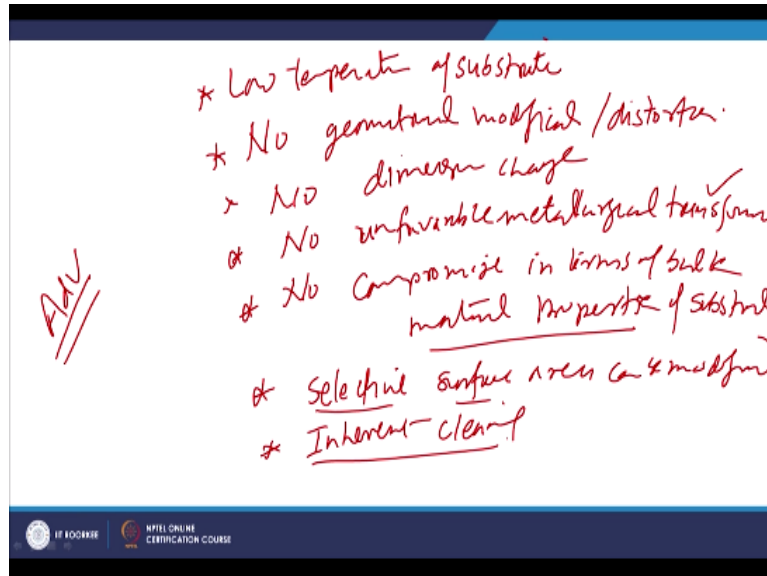 * Low temperate of substrate
* No geometrical modfical / distortion.
* No dimension change
* No unfavarable metallurgical transform
* No Compromise in terms of bulk
material properties of substrat
* Selective surface areas can be modfi
* Inherent cleaning
Adv
IIT ROORKEE
NPTEL ONLINE
CERTIFICATION COURSE